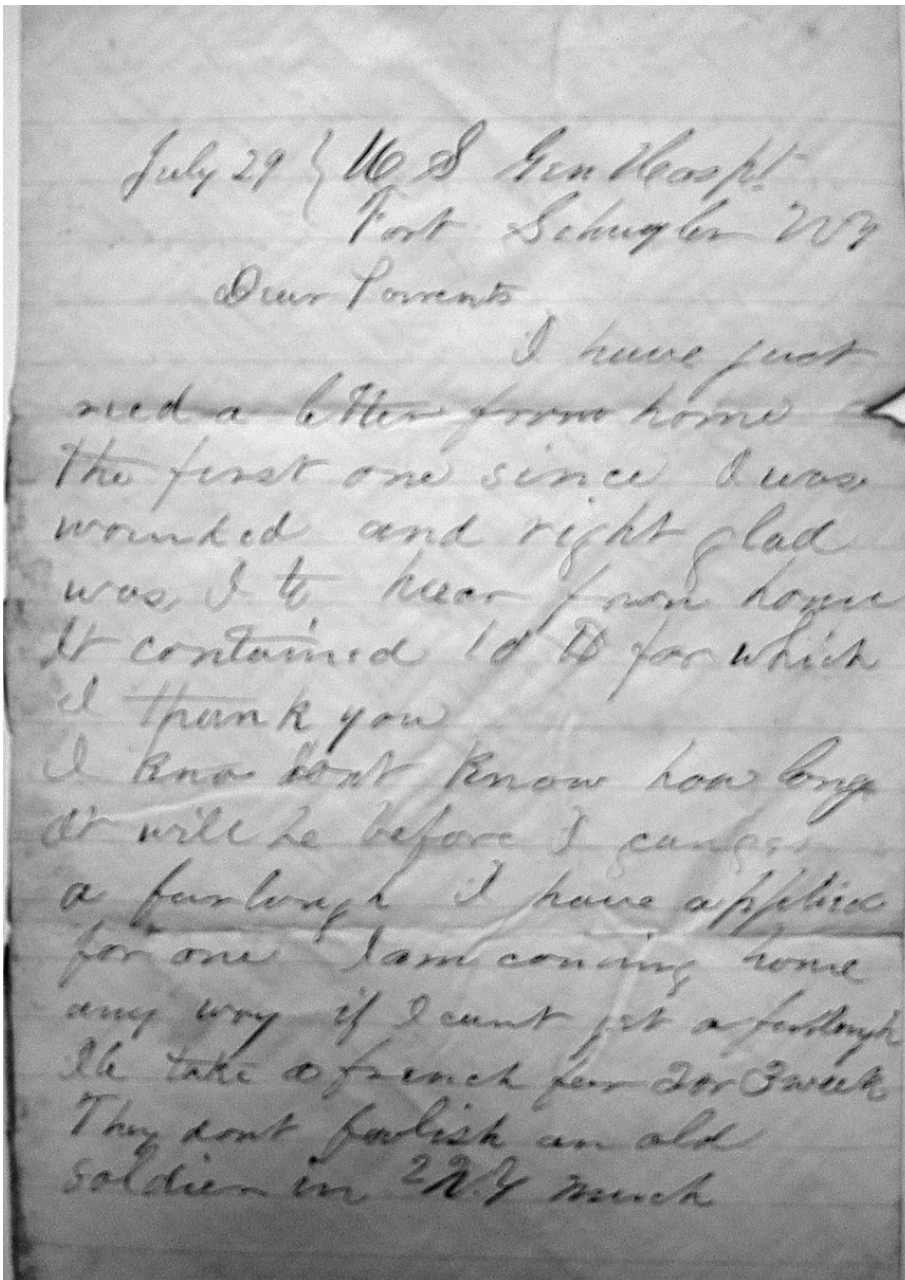 July 29 } U S Gen Hospt
Fort Schuyler NY
Dear Parrents
I have just
recd a letter from home
The first one since I was
wounded and right glad
was I to hear from home
It contained 10 D for which
I thank you
I kno dont know how long
it will be before I can get
a furlough I have applied
for one I am coming home
any way if I cant get a furlough
Ile take a french for 2 or 3 week
They dont foolish an old
soldier in NY much